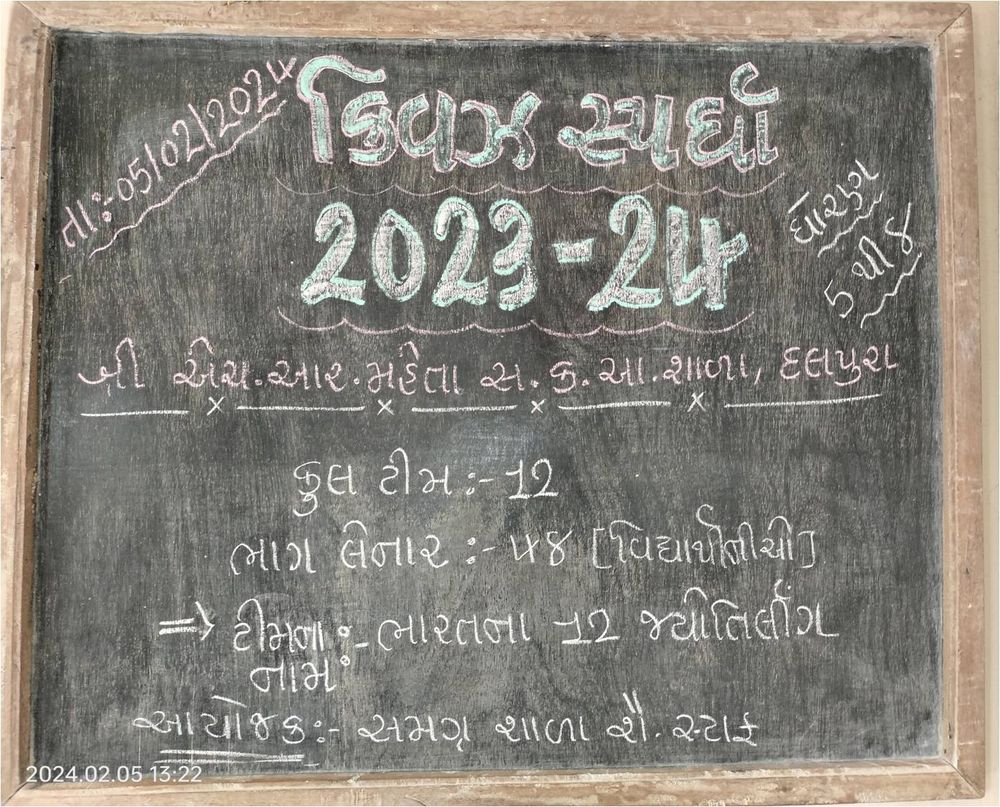 તા:-05/02/2024
ક્વિઝ સ્પર્ધા
2023-24
ધોરણ
5 થી ૮
શ્રી એચ.આર.મહેતા સ.ક.આ.શાળા, દલપુરા
કુલ ટીમ :- 12
ભાગ લેનાર :- ૫૪ [વિદ્યાર્થીનીઓ]
⇒ ટીમના :- ભારતના 12 જ્યોતિર્લીંગ
નામ
આયોજક :- સમગ્ર શાળા શૈ. સ્ટાફ
2024.02.05 13:22